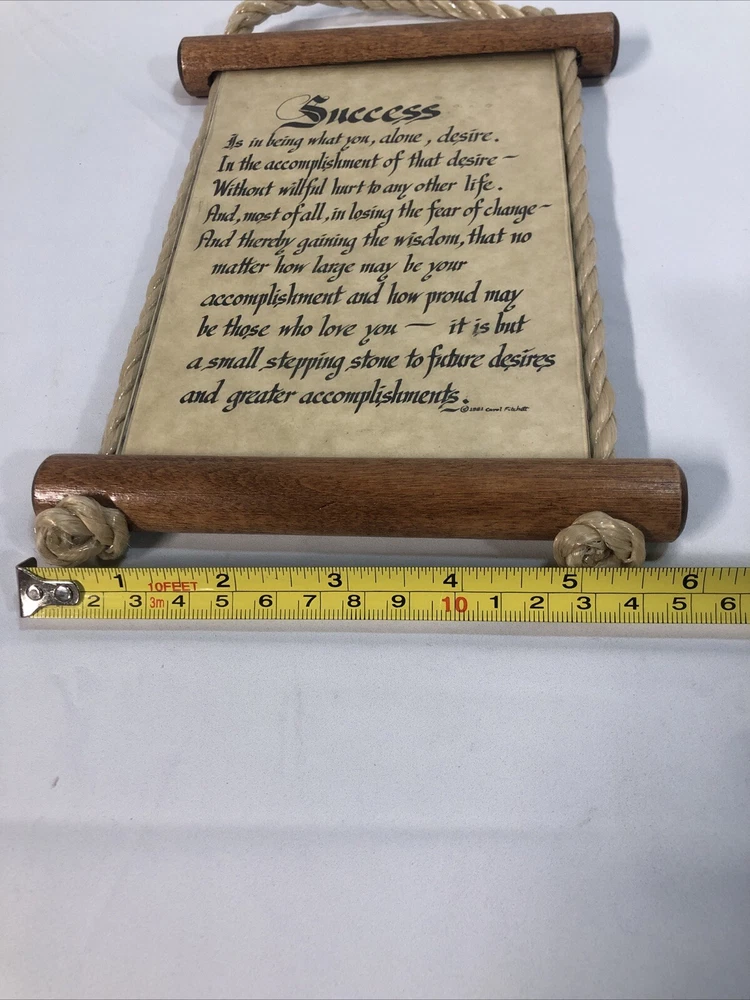 Success
Is in being what you, alone, desire.
In the accomplishment of that desire —
Without willful hurt to any other life.
And, most of all, in losing the fear of change —
And thereby gaining the wisdom, that no
matter how large may be your
accomplishment and how proud may
be those who love you — it is but
a small stepping stone to future desires
and greater accomplishments.
© 1981 Carol
1 10FEET 2 3 4 5 6
2 3 3m 4 5 6 7 8 9 10 1 2 3 4 5 6